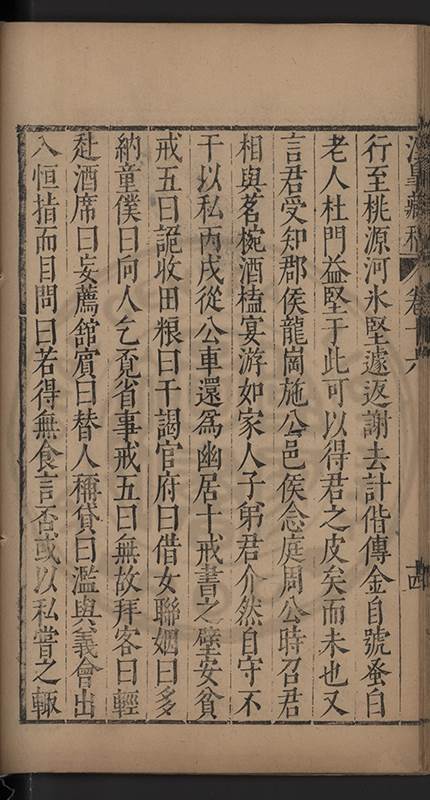 卷十六
行至桃源河氷堅遽返謝去計偕傳金自號蚤白
老人杜門益堅于此可以得君之皮矣而未也又
言君受知郡侯龍崗施公邑侯念庭周公時召君
相與茗椀酒榼宴游如家人子弟君介然自守不
干以私丙戌從公車還爲幽居十戒書之壁安貧
戒五曰詭收田粮曰干謁官府曰借女聯姻曰多
納童僕曰向人乞覔省事戒五曰無故拜客曰輕
赴酒席曰妄薦館賓曰替人稱貸曰濫與義會出
入恒指而目問曰若得無食言否或以私嘗之輙